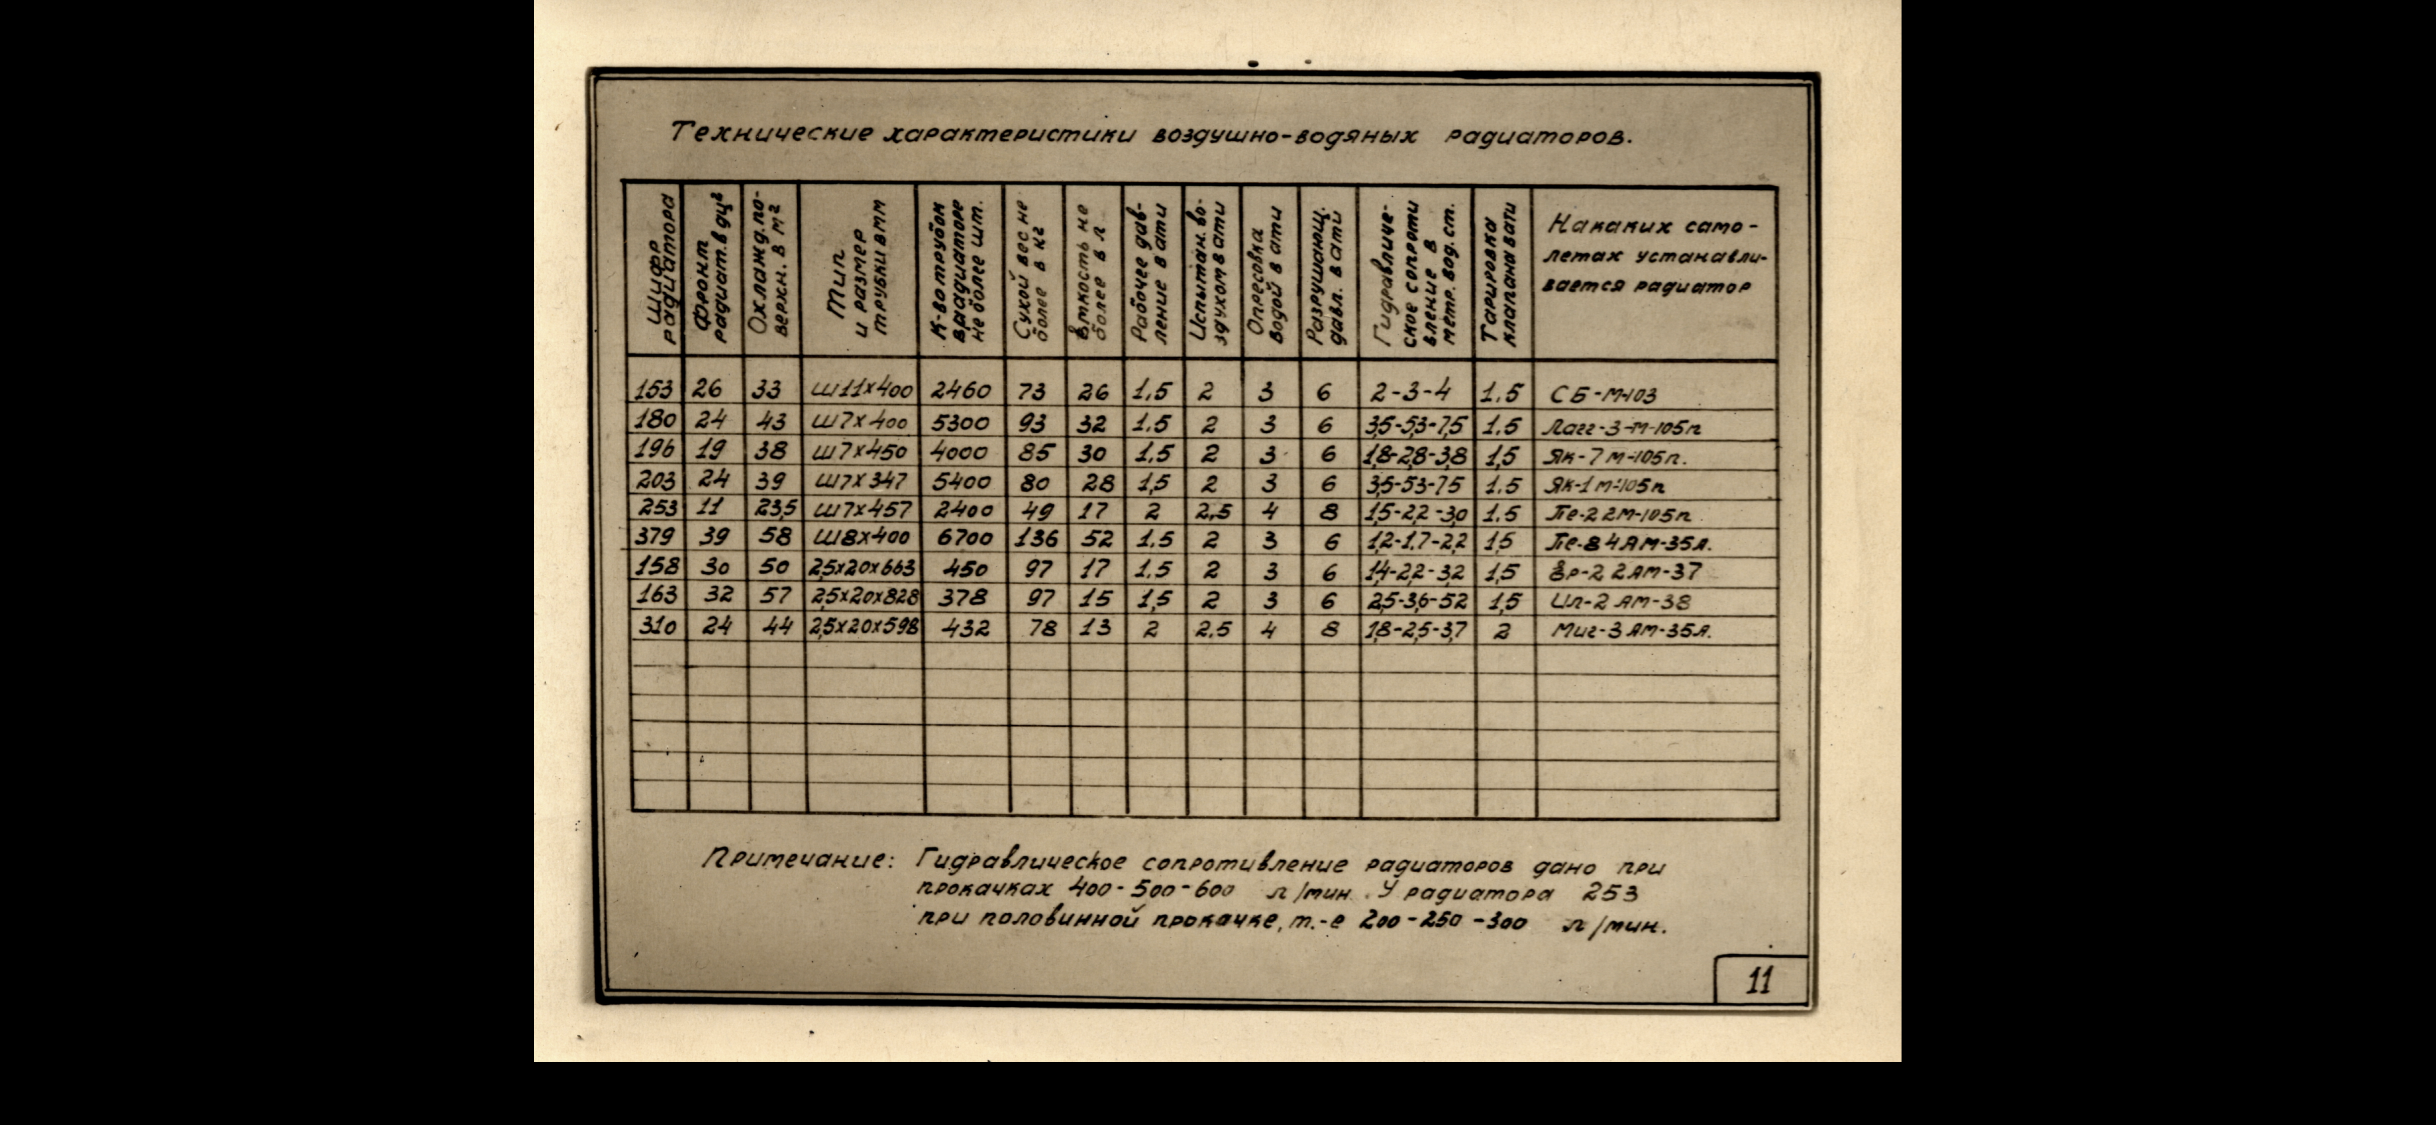 Технические характеристики воздушно-водяных радиаторов.
Шифр радиатора
Фронт радиат. в дц²
Охлажд. по-
верхн. в м²
Тип
и размер
трубки в мм
К-во трубок
в радиаторе
не более шт.
Сухой вес не
более в кг
Емкость не
более в л
Рабочее дав-
ление в ати
Испытан. во-
здухом в ати
Опресовка
водой в ати
Разрушающ.
давл. в ати
Гидравличе-
ское сопроти
вление в
метр. вод. ст.
Тарировка
клапана в ати
На каких само-
летах устанавли-
вается радиатор
153 26 33 Ш11х400 2460 73 26 1.5 2 3 6 2-3-4 1.5 СБ-М-103
180 24 43 Ш7х400 5300 93 32 1.5 2 3 6 3,5-5,3-7,5 1.5 Лагг-3-М-105п
196 19 38 Ш7х450 4000 85 30 1,5 2 3 6 1,8-2,8-3,8 1,5 Як-7 М-105п.
203 24 39 Ш7х347 5400 80 28 1,5 2 3 6 3,5-53-75 1.5 Як-1 М-105п
253 11 23,5 Ш7х457 2400 49 17 2 2,5 4 8 1,5-2,2-3,0 1.5 Пе-2 2М-105п
379 39 58 Ш8х400 6700 136 52 1.5 2 3 6 1,2-1.7-2,2 1,5 Пе-8 4АМ-35А.
158 30 50 2,5х20х663 450 97 17 1.5 2 3 6 1,4-2,2-3,2 1,5 Ер-2 2АМ-37
163 32 57 2,5х20х828 378 97 15 1,5 2 3 6 2,5-3,6-52 1,5 Ил-2 АМ-38
310 24 44 2,5х20х598 432 78 13 2 2.5 4 8 1,8-2,5-3,7 2 Миг-3 АМ-35А.
Примечание: Гидравлическое сопротивление радиаторов дано при
прокачках 400-500-600 л/мин. У радиатора 253
при половинной прокачке, т.-е 200-250-300 л/мин.
11